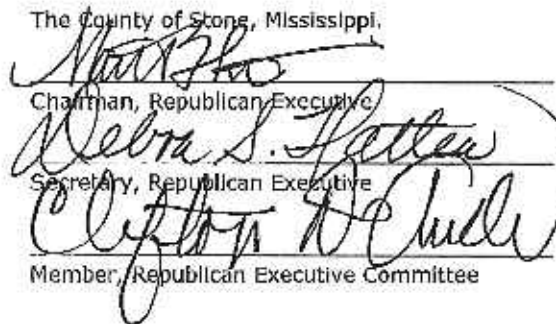 The County of Stone, Mississippi.
Chairman, Republican Executive
Debra S.
Secretary, Republican Executive
Clifton D
Member, Republican Executive Committee